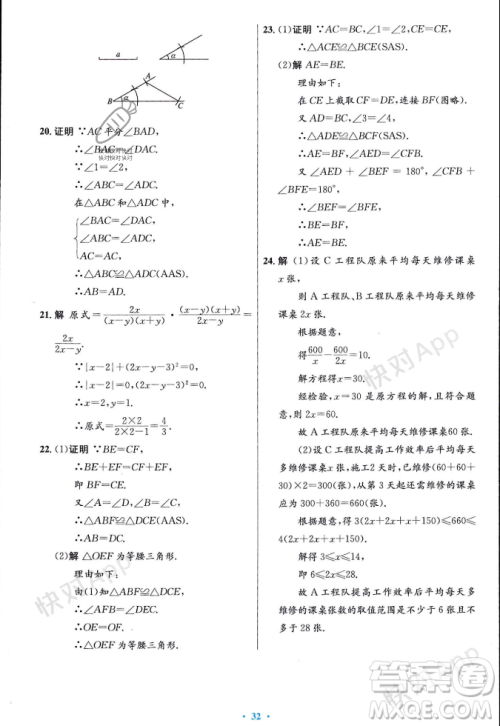 a
α
A
B
α
C
20. 证明 ∵AC 平分∠BAD,
∴∠BAC=∠DAC.
∵∠1=∠2,
∴∠ABC=∠ADC.
在△ABC 和△ADC 中,
∠BAC=∠DAC,
∠ABC=∠ADC,
AC=AC,
∴△ABC≌△ADC(AAS).
∴AB=AD.
21. 解 原式=2x/((x-y)(x+y))·((x-y)(x+y))/(2x-y)=
2x/(2x-y).
∵|x-2|+(2x-y-3)²=0,
∴|x-2|=0,(2x-y-3)²=0.
∴x=2,y=1.
∴原式=(2×2)/(2×2-1)=4/3.
22. (1)证明 ∵BE=CF,
∴BE+EF=CF+EF,
即 BF=CE.
又∠A=∠D,∠B=∠C,
∴△ABF≌△DCE(AAS).
∴AB=DC.
(2)解 △OEF 为等腰三角形.
理由如下:
由(1)知△ABF≌△DCE,
∴∠AFB=∠DEC.
∴OE=OF.
∴△OEF 为等腰三角形.
23. (1)证明 ∵AC=BC,∠1=∠2,CE=CE,
∴△ACE≌△BCE(SAS).
(2)解 AE=BE.
理由如下:
在 CE 上截取 CF=DE,连接 BF(图略).
∵AD=BC,∠3=∠4,CF=DE,
∴△ADE≌△BCF(SAS).
∴AE=BF,∠AED=∠CFB.
又∠AED+∠BEF=180°,∠CFB+
∠EFB=180°,
∴∠BEF=∠EFB.
∴BE=BF.
∴AE=BE.
24. 解 (1)设 C 工程队原来平均每天维修课桌
x 张,
则 A 工程队、B 工程队原来平均每天维修
课桌 2x 张.
根据题意,
得600/x-600/2x=10.
解方程得 x=30.
经检验,x=30 是原方程的解,且符合题
意,则 2x=60.
故 A 工程队原来平均每天维修课桌 60 张.
(2)设 C 工程队提高工作效率后平均每天
多维修课桌 x 张,施工2天时,已维修(60+60+
30)×2=300(张),从第 3 天起还需维修的张数
应为 300+360=660(张).
根据题意,
得 3(2x+2x+x+150)≤660≤4(2x+
2x+x+150).
解得 3≤x≤14,
即 6≤2x≤28.
故 A 工程队提高工作效率后平均每天
多维修的课桌张数的取值范围是不少于 6 张且不
多于 28 张.
32
快对App
快对App
快对App
答案圈
MXQE.COM